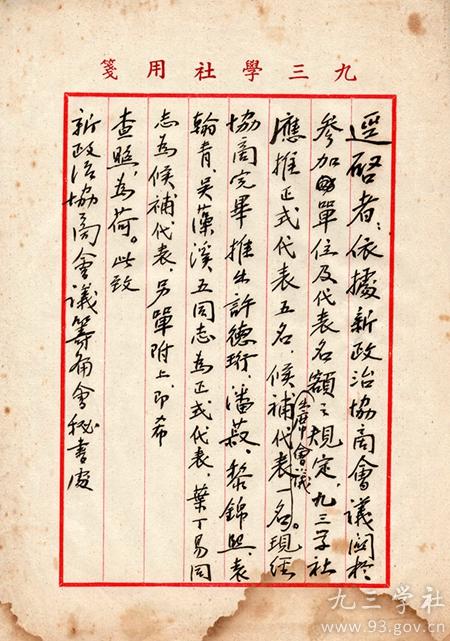 九三學社用箋
逕啓者：依據新政治協商會議關於
參加單位及代表名額之規定，九三学社
應推正式代表五名，候補代表一名。現經
出席會議
協商完畢推出許德珩、潘菽、黎錦熙、袁
翰青、吳藻溪五同志為正式代表，葉丁易同
志為候補代表，另單附上，即希
查照為荷。此致
新政治協商會議籌备會秘書處
九三学社
www.93.gov.cn